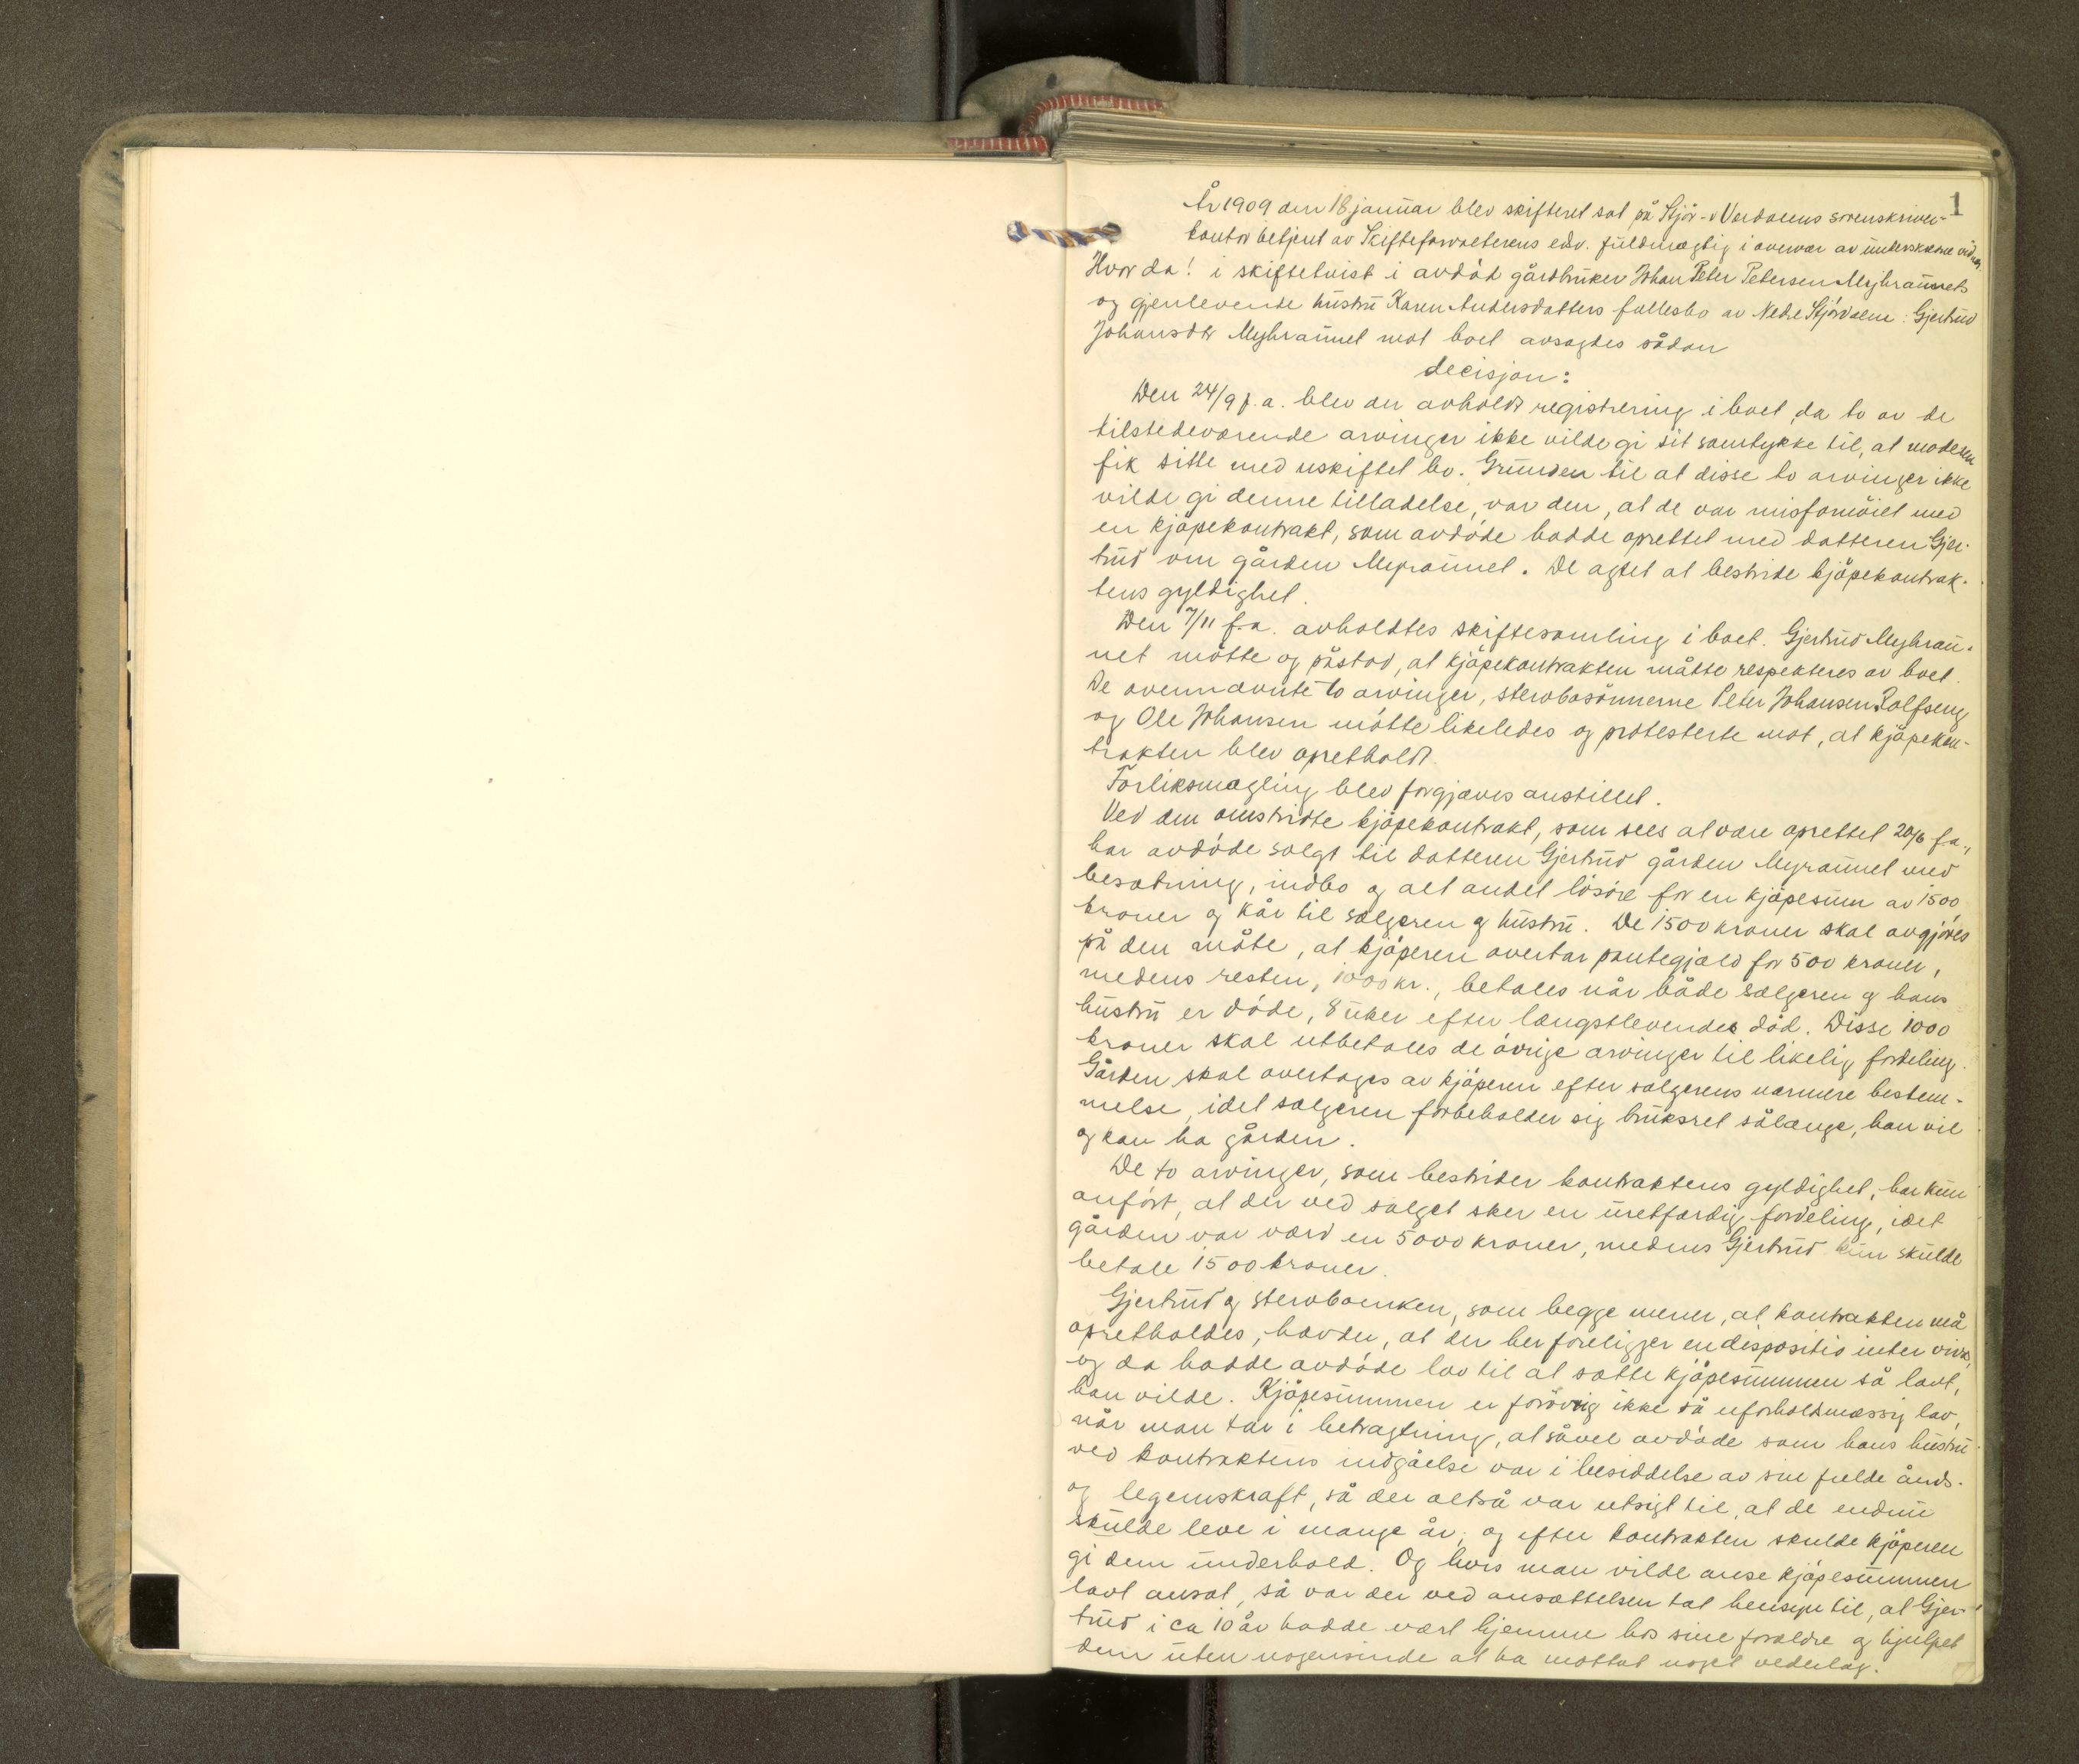 1
År 1909 den 18 januar blev skifteret sat på Stjør- & Verdalens sorenskriver-
kontor betjent av Skifteforvalterens edsv. fuldmægtig i overvær av underskrevne vidner.
Hvor da! i skiftetvist i avdød gårdbruker Johan Peter Petersen Myhraunets
og gjenlevende hustru Karen Andersdatters fællesbo av Nedre Stjørdalen: Gjertrud
Johansdtr Myhraunet mot boet avsagdes sådan
decisjon:
Den 24/9 f.a. blev der avholdt registrering i boet, da to av de
tilstedeværende arvinger ikke vilde gi sit samtykke til, at moderen
fik sitte med uskiftet bo. Grunden til at disse to arvinger ikke
vilde gi denne tilladelse, var den, at de var misfornöiet med
en kjöpekontrakt, som avdöde hadde oprettet med datteren Gjer-
trud om gården Myraunet. De agtet at bestride kjöpekontrak-
tens gyldighet.
Den 7/11 f.a. avholdtes skiftesamling i boet. Gjertrud Myhrau-
net mötte og påstod, at kjöpekontrakten måtte respekteres av boet.
De ovennævnte to arvinger, stervbosönnerne Peter Johansen Rolfseng
og Ole Johansen mötte likeledes og protesterte mot, at kjöpekon-
trakten blev opretholdt.
Forliksmægling blev forgjæves anstillet.
Ved den omstridte kjöpekontrakt, som sees at være oprettet 20/6 f.a.,
har avdöde solgt til datteren Gjertrud gården Myraunet med
besætning, indbo og alt andet lösöre for en kjöpesum av 1500
kroner og kår til sælgeren og hustru. De 1500 kroner skal avgjöres
på den måte, at kjöperen overtar pantegjæld for 500 kroner,
medens resten, 1000 kr., betales når både sælgeren og hans
hustru er döde, 8 uker efter længstlevendes död. Disse 1000
kroner skal utbetales de övrige arvinger til likelig fordeling.
Gården skal overtages av kjöperen efter sælgerens nærmere bestem-
melse, idet sælgeren forbeholder sig bruksret sålænge, han vil
og kan ha gården.
De to arvinger, som bestrider kontraktens gyldighet, har kun
anfört, at der ved salget sker en uretfærdig fordeling, idet
gården var værd en 5000 kroner, medens Gjertrud kun skulde
betale 1500 kroner.
Gjertrud og stervboenken, som begge mener, at kontrakten må
opretholdes, hævder, at der her foreligger en dispositio inter vivos,
og da hadde avdöde lov til at sætte kjöpesummen så lavt,
han vilde. Kjöpesummen er forövrig ikke så uforholdsmæssig lav,
når man tar i betragtning, at såvel avdöde som hans hustru
ved kontraktens indgåelse var i besiddelse av sin fulde ånds-
og legemskraft, så der altså var utsigt til, at de endnu
skulde leve i mange år; og efter kontrakten skulde kjöperen
gi dem underhold. Og hvis man vilde anse kjöpesummen
lavt ansat, så var der ved ansættelsen tat hensyn til, at Gjer-
trud i ca 10 år hadde vært hjemme hos sine forældre og hjulpet
dem uten nogensinde at ha mottat noget vederlag.